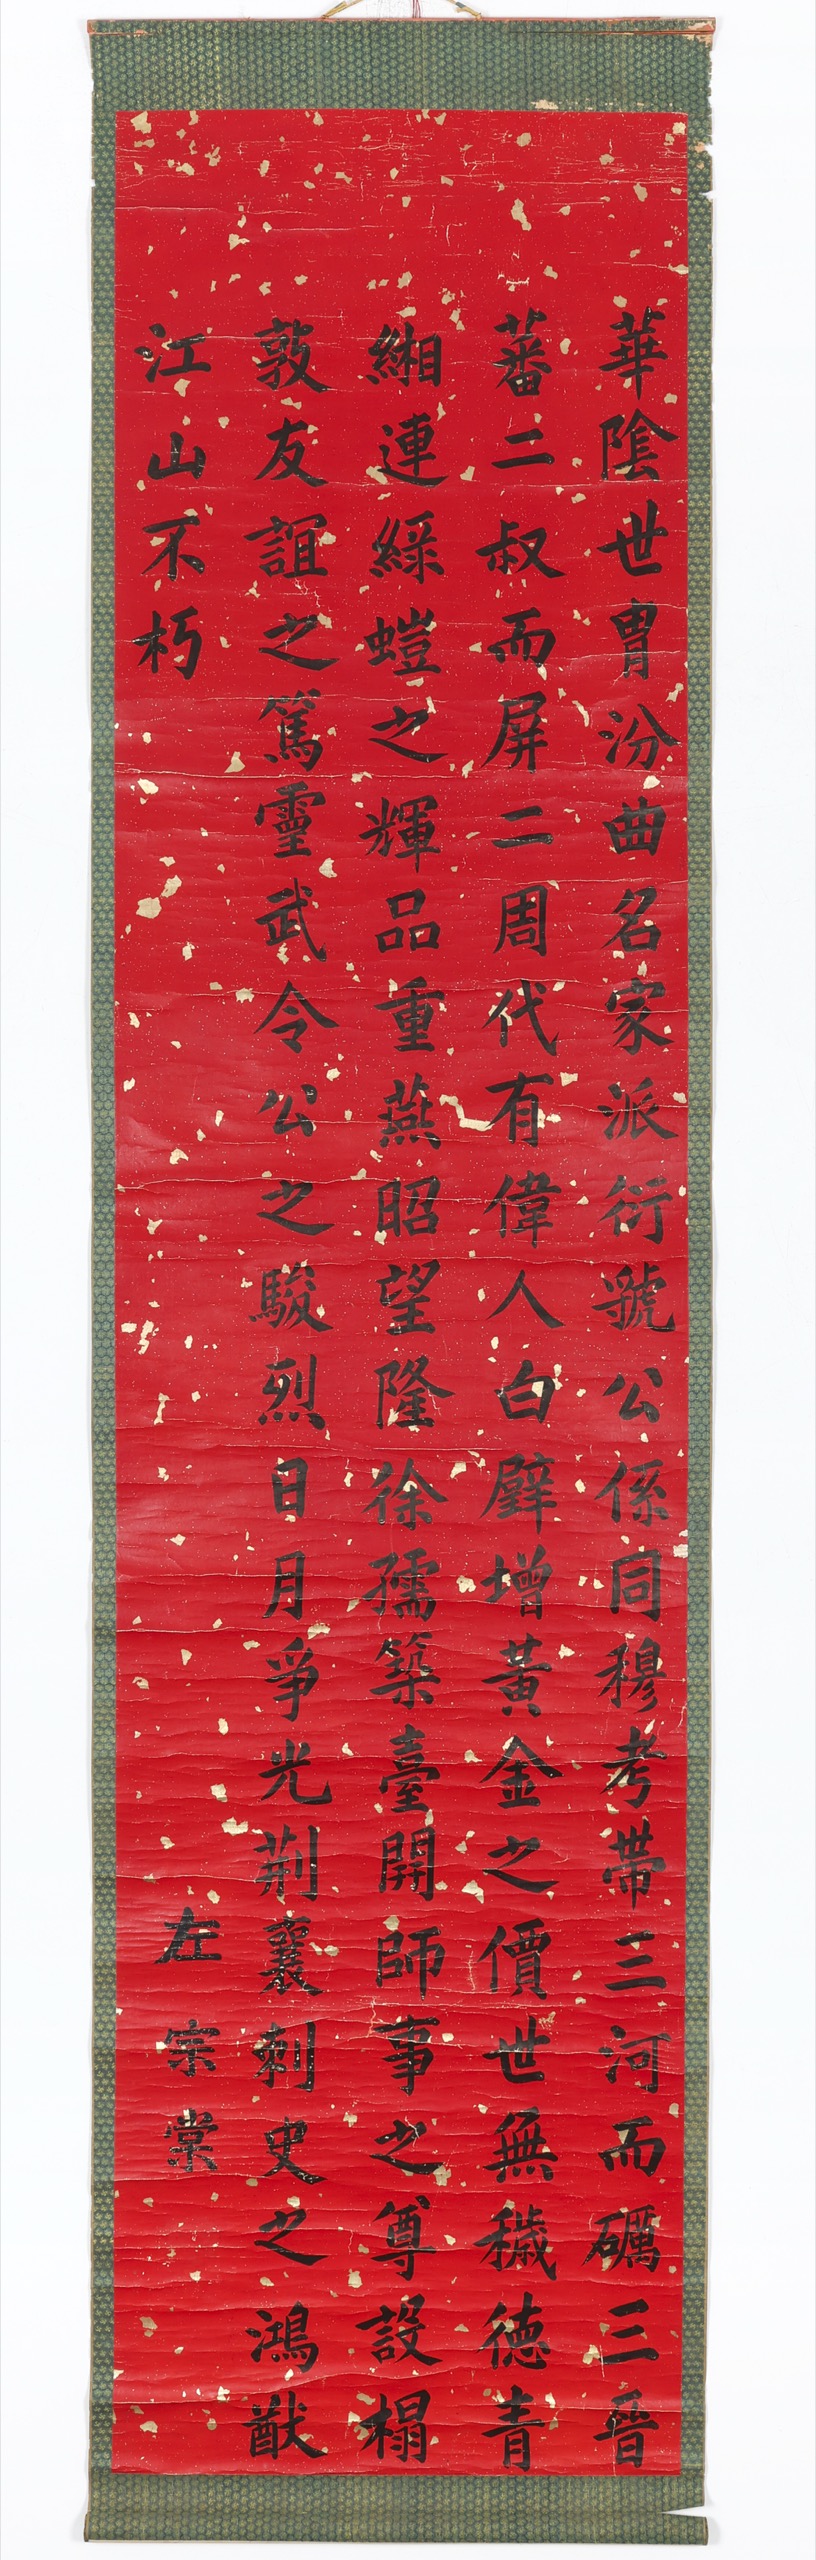 華陰世胄汾曲名家派衍虢公係同穆考帶三河而礪三晉
蕃二叔而屏二周代有偉人白璧增黃金之價世無穢德青
緗連綠螘之輝品重燕昭望隆徐孺築臺開師事之尊設榻
敦友誼之篤靈武令公之駿烈日月爭光荊襄刺史之鴻猷
江山不朽
左宗棠